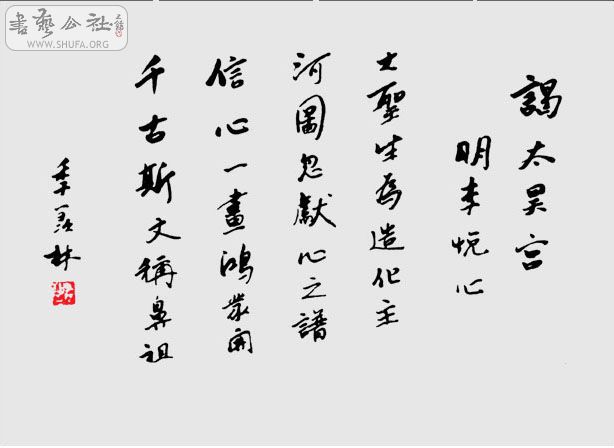 書藝公社
WWW.SHUFA.ORG
謁太昊宫
明李悦心
大聖生為造化主
河圖忽獻心之譜
信心一畫鴻蒙開
千古斯文稱鼻祖
季羡林